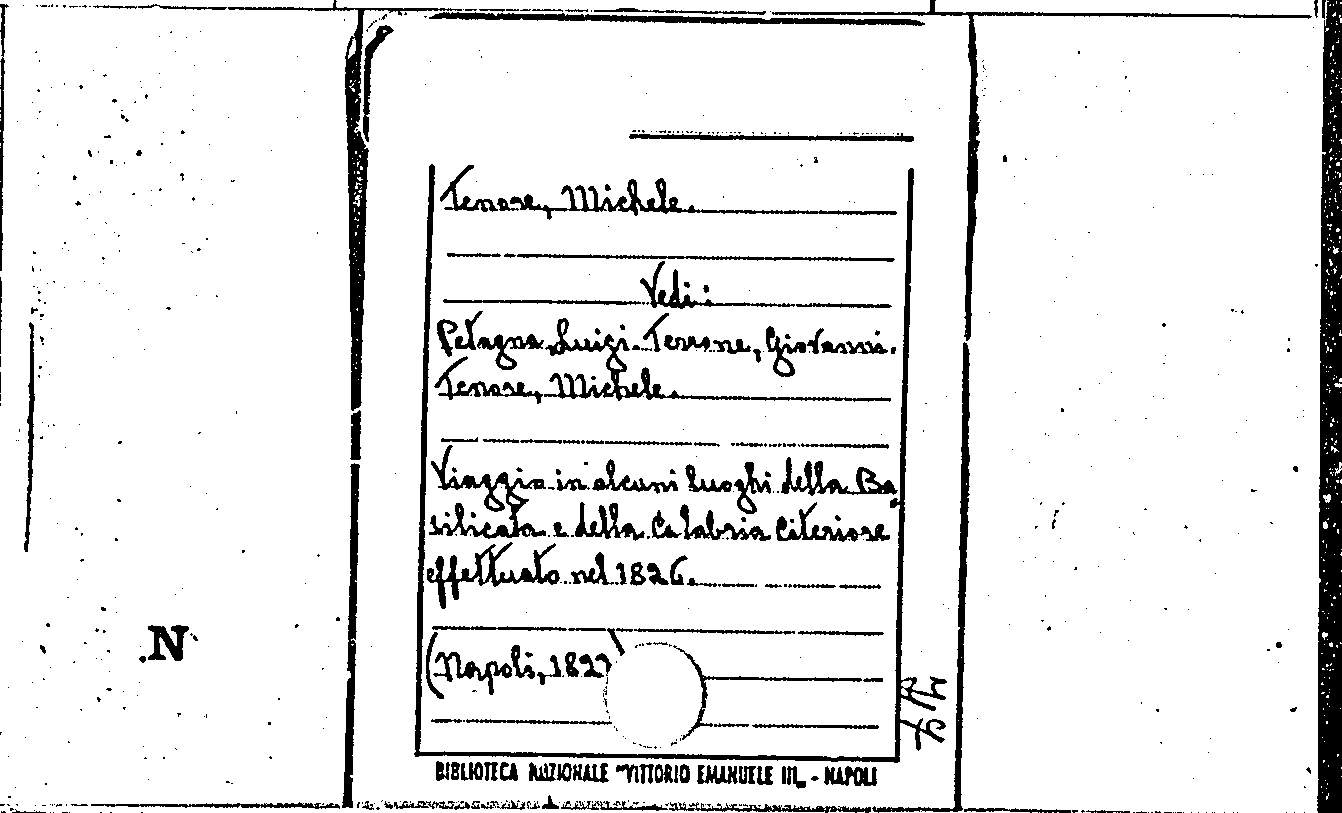 Tenore, Michele.
Vedi:
Petagna, Luigi. Terrone, Giovanni.
Tenore, Michele.
Viaggio in alcuni luoghi della Ba-
silicata e della Calabria Citeriore
effettuato nel 1826.
(Napoli, 1827)
BIBLIOTECA NAZIONALE "VITTORIO EMANUELE III„ - NAPOLI
N